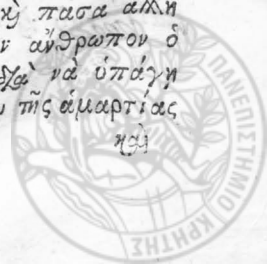 πᾶσα ἄλλη
ν ἄνθρωπον ὁ
νὰ ὑπάγῃ
τῆς ἁμαρτίας
ΠΑΝΕΠΙΣΤΗΜΙΟ ΚΡΗΤΗΣ